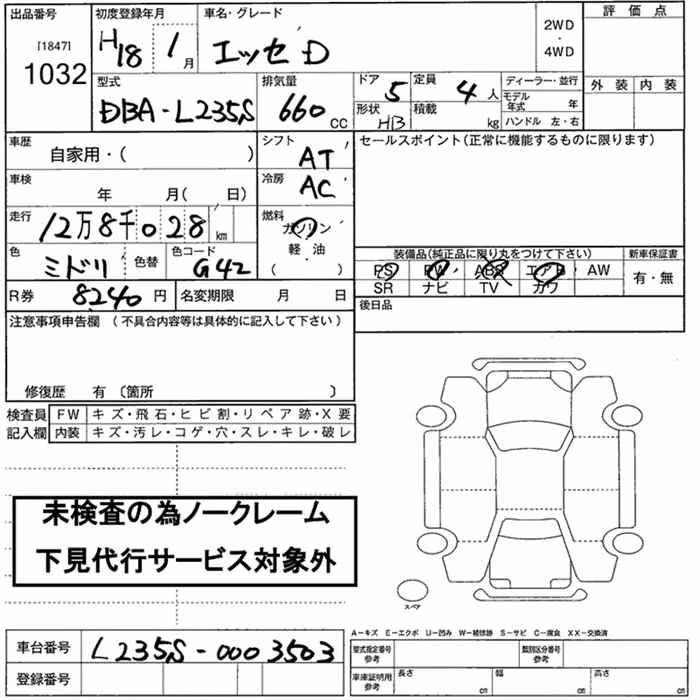 出品番号 初度登録年月 車名・グレード 評価点
[1847] 1032 H18 1月 エッセD 2WD・4WD
外装 内装
型式 排気量 ドア 5 定員 4人 ディーラー・並行
DBA-L235S 660CC 形状 HB 積載 kg モデル年式 年
ハンドル 左・右
車歴 自家用・( ) シフト AT セールスポイント(正常に機能するものに限ります)
車検 年 月( 日) 冷房 AC
走行 12万8千028km 燃料 ガソリン
軽・油
( )
色 ミドリ 色替 色コード G42 装備品(純正品に限り丸をつけて下さい) 新車保証書
PS PW ABS エアB AW 有・無
R券 8240円 名変期限 月 日 SR ナビ TV カワ
後日品
注意事項申告欄 (不具合内容等は具体的に記入して下さい)
修復歴 有 (箇所 )
検査員 FW キズ・飛石・ヒビ割・リペア跡・X要
記入欄 内装 キズ・汚レ・コゲ・穴・スレ・キレ・破レ
未検査の為ノークレーム
下見代行サービス対象外
スペア
A−キズ E−エクボ U−凹み W−補修跡 S−サビ C−腐食 XX−交換済
車台番号 L235S-0003503 型式指定番号 参考 類別区分番号 参考
登録番号 車庫証明用 参考 長さ cm 幅 cm 高さ cm